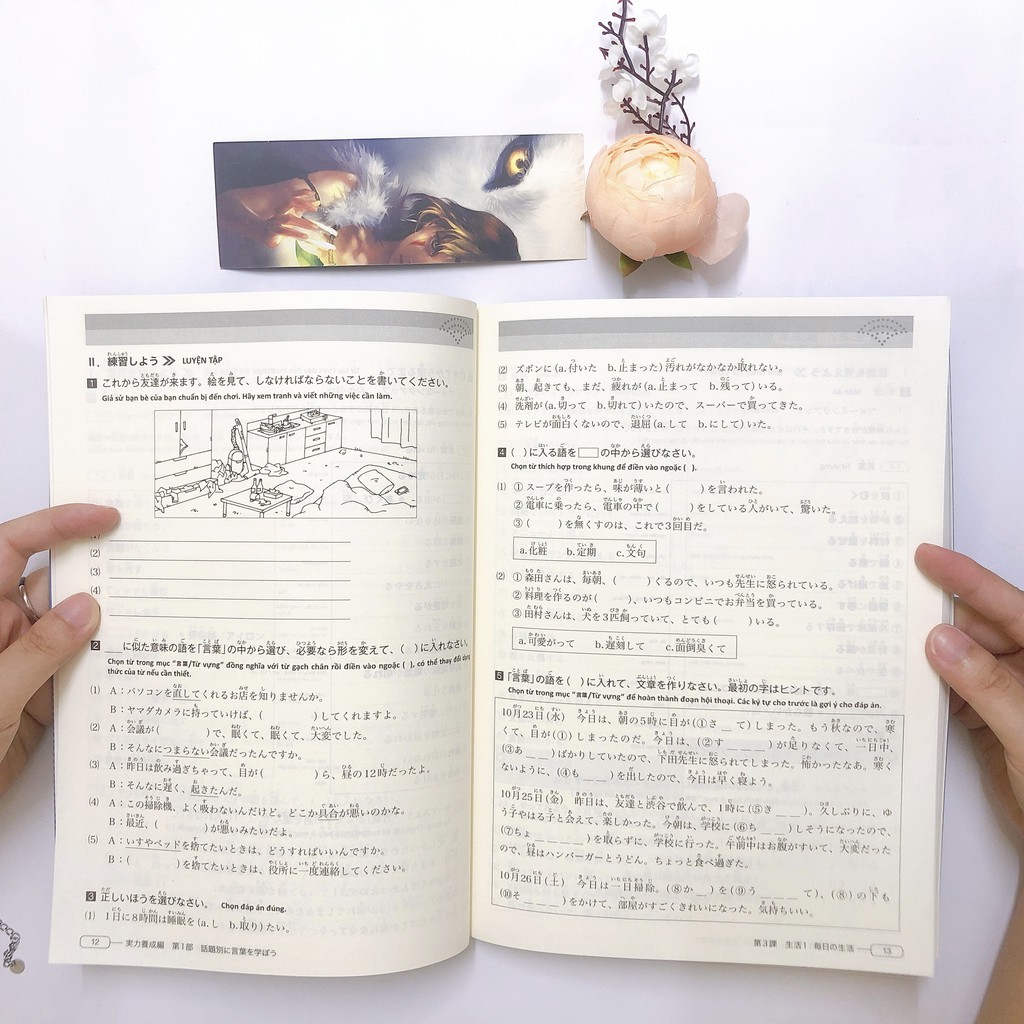 II. 練習しよう LUYỆN TẬP
1 これから友達が来ます。絵を見て、しなければならないことを書いてください。
Giả sử bạn bè của bạn chuẩn bị đến chơi. Hãy xem tranh và viết những việc cần làm.
(2)
(3)
(4)
2 ___に似た意味の語を「言葉」の中から選び、必要なら形を変えて、( )に入れなさい。
Chọn từ trong mục "言葉/Từ vựng" đồng nghĩa với từ gạch chân rồi điền vào ngoặc ( ), có thể thay đổi dạng
thức của từ nếu cần thiết.
(1) A:パソコンを直してくれるお店を知りませんか。
B:ヤマダカメラに持っていけば、( )してくれますよ。
(2) A:会議が( )で、眠くて、眠くて、大変でした。
B:そんなにつまらない会議だったんですか。
(3) A:昨日は飲み過ぎちゃって、目が( )ら、昼の12時だったよ。
B:そんなに遅く、起きたんだ。
(4) A:この掃除機、よく吸わないんだけど。どこか具合が悪いのかな。
B:最近、( )が悪いみたいだよ。
(5) A:いすやベッドを捨てたいときは、どうすればいいんですか。
B:( )を捨てたいときは、役所に一度連絡してください。
3 正しいほうを選びなさい。 Chọn đáp án đúng.
(1) 1日に8時間は睡眠を(a.し b.取り)たい。
12 実力養成編 第1部 話題別に言葉を学ぼう
(2) ズボンに(a.付いた b.止まった)汚れがなかなか取れない。
(3) 朝、起きても、まだ、疲れが(a.止まって b.残って)いる。
(4) 洗剤が(a.切って b.切れて)いたので、スーパーで買ってきた。
(5) テレビが面白くないので、退屈(a.して b.にして)いた。
4 ( )に入る語を□の中から選びなさい。
Chọn từ thích hợp trong khung để điền vào ngoặc ( ).
(1) ① スープを作ったら、味が薄いと( )を言われた。
② 電車に乗ったら、電車の中で( )をしている人がいて、驚いた。
③ ( )を無くすのは、これで3回目だ。
a.化粧 b.定期 c.文句
(2) ① 森田さんは、毎朝、( )くるので、いつも先生に怒られている。
② 料理を作るのが( )、いつもコンビニでお弁当を買っている。
③ 田村さんは、犬を3匹飼っていて、とても( )いる。
a.可愛がって b.遅刻して c.面倒臭くて
5 「言葉」の語を( )に入れて、文章を作りなさい。最初の字はヒントです。
Chọn từ trong mục "言葉/Từ vựng" để hoàn thành đoạn hội thoại. Các ký tự cho trước là gợi ý cho đáp án.
10月23日(水) 今日は、朝の5時に目が(①さ __ て)しまった。もう秋なので、寒
くて、目が(①)しまったのだ。今日は、(②す __ __ __ __)が足りなくて、一日中、
(③あ __ __ __)ばかりしていたので、下田先生に怒られてしまった。怖かったなあ。寒く
ないように、(④も __ __ __)を出したので、今日は早く寝よう。
10月25日(金) 昨日は、友達と渋谷で飲んで、1時に(⑤き __ __ __)。久しぶりに、ゆ
う子やはる子と会えて、楽しかった。今朝は、学校に(⑥ち __ __)しそうになったので、
(⑦ちょ __ __ __ __ __)を取らずに、学校に行った。午前中はお腹がすいて、大変だった
ので、昼はハンバーガーとうどん。ちょっと食べ過ぎた。
10月26日(土) 今日は一日掃除。(⑧か __)を(⑨う __ __ __ て)、(⑧)の下も
(⑩そ __ __ __ __)をかけて、部屋がすごくきれいになった。気持ちいい。
第3課 生活1 毎日の生活 13